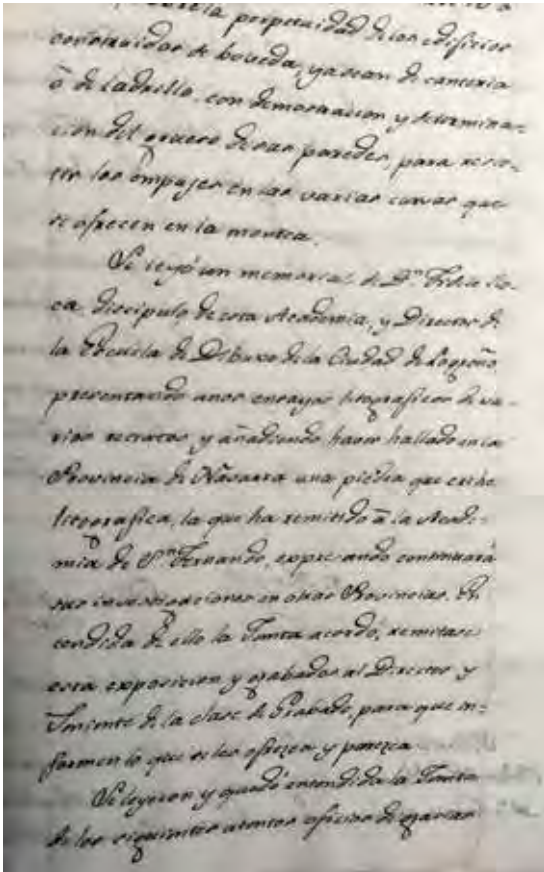 la perpetuidad de los edificios
construidos de boveda, ya sean de canteria
ò de Ladrillo, con demostracion y determina-
cion del grueso de sus paredes, para resis-
tir los empujes en las varias curvas que
se ofrecen en la montea.
Se leyó un memorial de Dn.
discipulo de esta Academia, y Director de
la Escuela de Dibuxo de la Ciudad de Logroño,
presentando unos ensayos litograficos de va-
rios retratos, y añadiendo haver hallado en la
Provincia de Navarra una piedra que cree
litografica, la que ha remitido à la Acade-
mia de Sn. Fernando, expresando continuará
sus investigaciones en otras Provincias. En-
tendida de ello la Junta acordó, remitase
esta exposicion y grabados al Director y
Teniente de la clase de Grabado, para que in-
formen lo que se les ofrezca y parezca.
Se leyeron y quedó entendida la Junta
de los siguientes atentos oficios de gracias